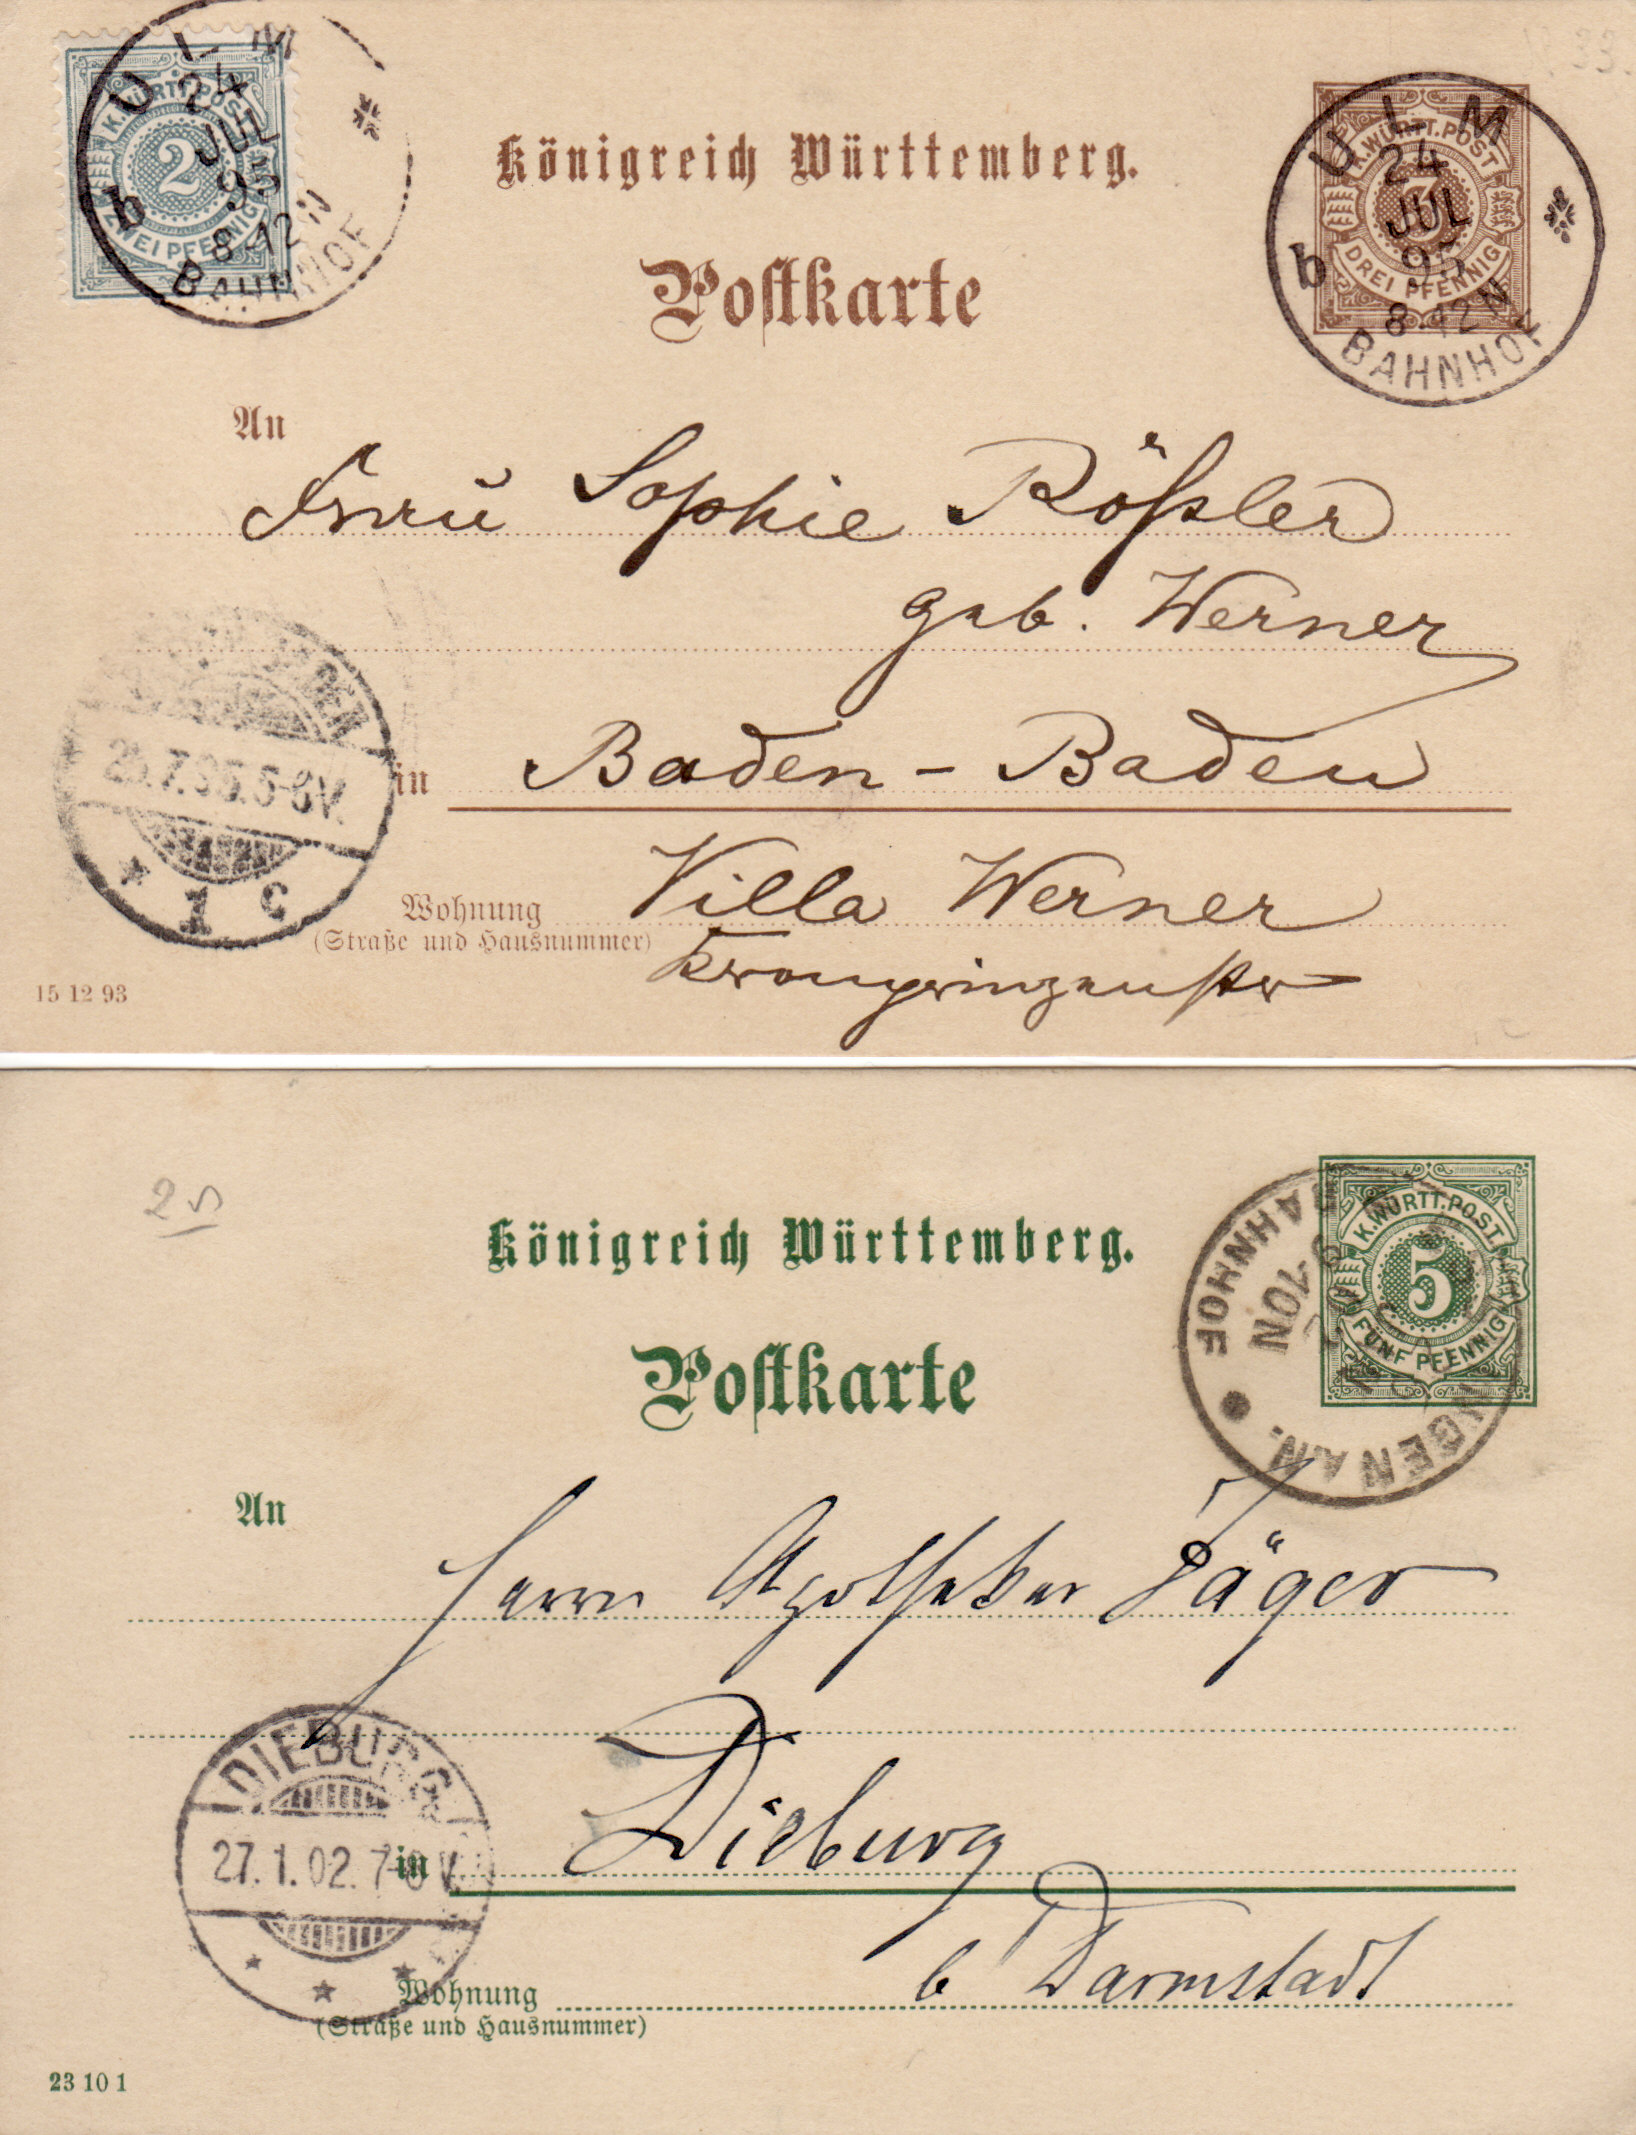 K. WÜRTT. POST
2
ZWEI PFENNIG
ULM
24
JUL
95
8-12 N
b
BAHNHOF
Königreich Württemberg.
Postkarte
K. WÜRTT. POST
3
DREI PFENNIG
ULM
24
JUL
95
8-12 N
b
BAHNHOF
An
Frau Sophie Rößler
geb. Werner
in Baden-Baden
25.7.95.5-6V.
* 1 c
Wohnung Villa Werner
(Straße und Hausnummer)
Kronprinzenstr
15 12 93
Königreich Württemberg.
Postkarte
K. WÜRTT. POST
5
FÜNF PFENNIG
BAHNHOF
9-10N
GEN A.N.
An
Herrn Apotheker Jäger
DIEBURG
27.1.02.7-8V.
in Dieburg
Wohnung b Darmstadt
(Straße und Hausnummer)
23 10 1